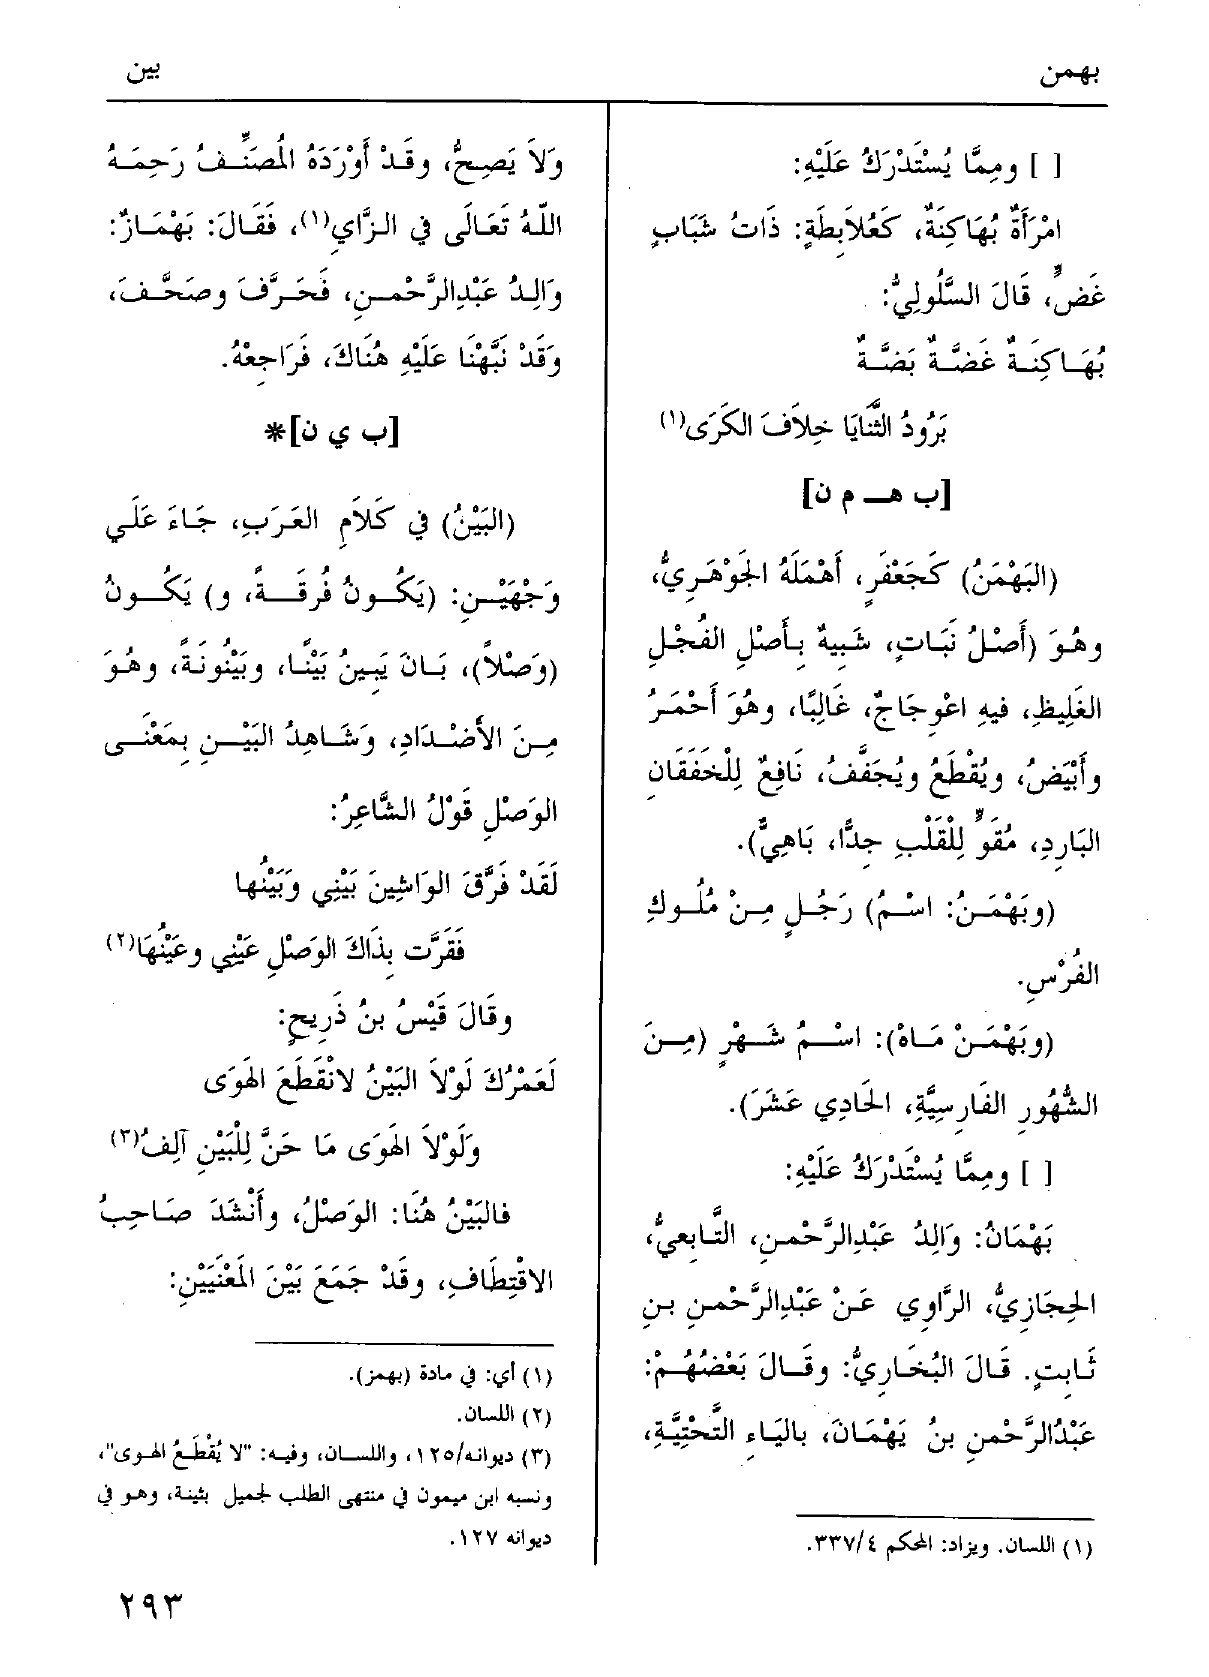 بهمن
بين
[ ] ومِمَّا يُسْتَدْرَكُ عَلَيْهِ:
امْرَأَةٌ بُهَاكِنَةٌ، كَعُلاَبِطَةٍ: ذَاتُ شَبَابٍ
غَضٍّ، قَالَ السَّلُولِيُّ:
بُهَـاكِنَـةٌ غَضَّـةٌ بَضَّـةٌ
بَرُودُ الثَّنَايَا خِلاَفَ الكَرَى(١)
[ب هـ م ن]
(البَهْمَنُ) كَجَعْفَرٍ، أَهْمَلَهُ الجَوْهَرِيُّ،
وهُـوَ (أَصْلُ نَبَاتٍ، شَبِيهٌ بِـأَصْلِ الفُجْلِ
الغَلِيظِ، فيهِ اعْوِجَاجٌ، غَالِبًا، وهُوَ أَحْمَرُ
وأَبْيَضُ، ويُقْطَعُ ويُجَفَّفُ، نَافِعٌ لِلْخَفَقَانِ
البَارِدِ، مُقَوٍّ لِلْقَلْبِ جِدًّا، بَاهِيٌّ).
(وبَهْمَـنُ: اسْـمُ) رَجُـلٍ مِـنْ مُلُـوكِ
الفُرْسِ.
(وبَهْمَـنْ مَـاهْ): اسْـمُ شَـهْرٍ (مِـنَ
الشُّهُورِ الفَارِسِيَّةِ، الحَادِي عَشَرَ).
[ ] ومِمَّا يُسْتَدْرَكُ عَلَيْهِ:
بَهْمَانُ: وَالِدُ عَبْدِالرَّحْمـنِ، التَّـابِعيُّ،
الحِجَازِيُّ، الرَّاوِي عَـنْ عَبْدِالرَّحْمنِ بـنِ
ثَـابِتٍ. قَـالَ البُخَـارِيُّ: وقَـالَ بَعْضُهُـمْ:
عَبْدُالرَّحْمنِ بنُ يَهْمَانَ، بالْيَاءِ التَّحْتِيَّةِ،
(١) اللسان. ويزاد: المحكم ٣٣٧/٤.
وَلاَ يَصِحُّ، وقَـدْ أَوْرَدَهُ المُصَنِّـفُ رَحِمَـهُ
اللَّهُ تَعَالَى في الزَّايِ(١)، فَقَالَ: بَهْمَـازٌ:
وَالِدُ عَبْدِالرَّحْمـنِ، فَحَرَّفَ وصَحَّـفَ،
وَقَدْ نَبَّهْنَا عَلَيْهِ هُنَاكَ، فَرَاجِعْهُ.
[ب ي ن]*
(البَيْنُ) في كَلاَمِ العَرَبِ، جَاءَ عَلَي
وَجْهَيْـنِ: (يَكُـونُ فُرقَـةً، و) يَكُـونُ
(وَصْلاً)، بَـانَ يَبِينُ بَيْنًـا، وبَيْنُونَـةً، وهُـوَ
مِـنَ الأَضْـدَادِ، وَشَـاهِدُ البَيْـنِ بِمَعْنَـى
الوَصْلِ قَوْلُ الشَّاعِرُ:
لَقَدْ فَرَّقَ الوَاشِينَ بَيْنِي وَبَيْنُها
فَقَرَّت بِذَاكَ الوَصْلِ عَيْنِي وعَيْنُهَا(٢)
وقَالَ قَيْسُ بنُ ذَرِيحٍ:
لَعَمْرُكَ لَوْلاَ البَيْنُ لانْقَطَعَ الهَوَى
وَلَوْلاَ الهَوَى مَا حَنَّ لِلْبَيْنِ آلِفُ(٣)
فالبَيْنُ هُنَا: الوَصْلُ، وأَنْشَدَ صَاحِبُ
الاقْتِطَافِ، وقَدْ جَمَعَ بَيْنَ المَعْنَيَيْنِ:
(١) أي: في مادة (بهمز).
(٢) اللسان.
(٣) ديوانه/١٢٥، واللسـان، وفيه: "لا يُقْطَعُ الهـوى"،
ونسبه ابن ميمون في منتهى الطلب لجميل بثينة، وهو في
ديوانه ١٢٧.
٢٩٣